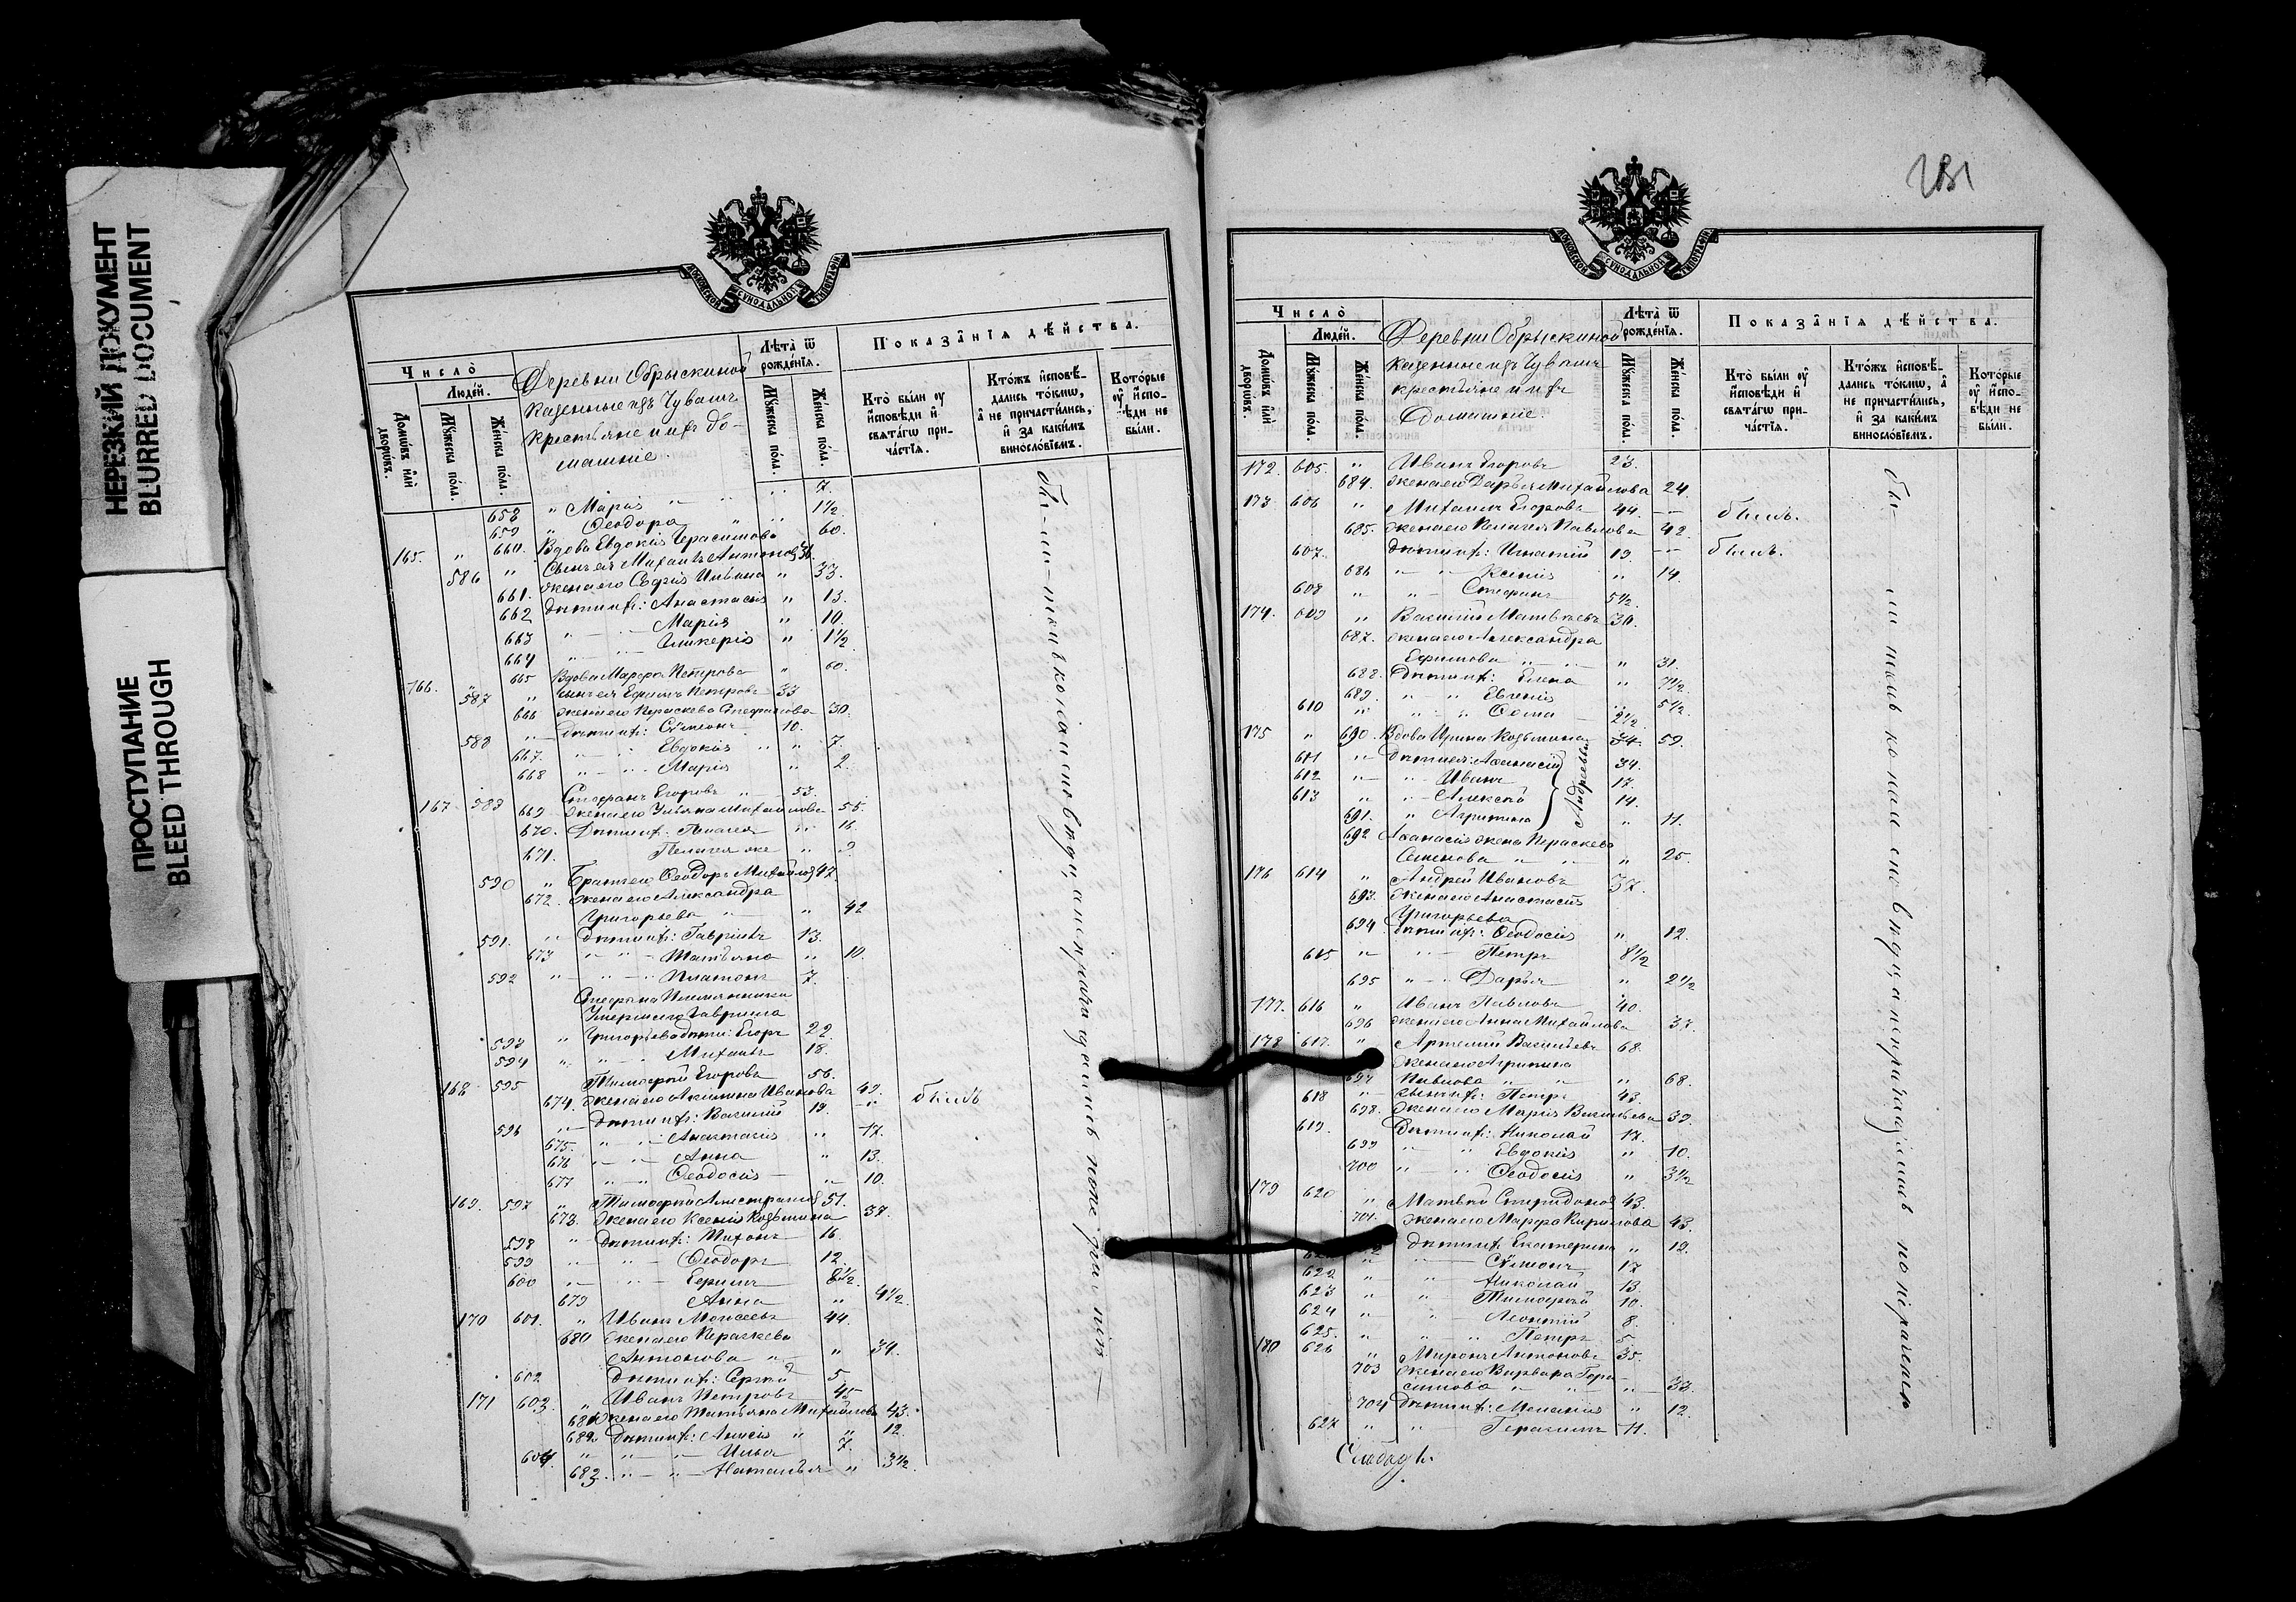 НЕРЕЗКИЙ ДОКУМЕНТ
BLURRED DOCUMENT
ПРОСТУПАНИЕ
BLEED THROUGH
МОСКОВСКОЙ СѴНОДАЛЬНОЙ ТИПОГРАФІИ
Число̀
Людей.
Домѡвъ илѝ дворѡвъ.
Мꙋжеска пола.
Женска пола.
Деревни Обрыскиной
казенные изъ Чувашъ
крестьяне и ихъ до-
машніе.
Лѣта̀ ѿ рожденїѧ.
Мꙋжеска пола.
Женска пола.
Показа̑нїѧ дѣйства.
Кто̀ были оу҆ исповѣди и҆ свѧтагѡ причастїѧ.
Ктожъ исповѣдались токмѡ, а҆ не причастились, и҆ за какимъ винословїемъ.
Которые оу҆ исповѣди не были.
658 " Марія " " 7.
659 " Ѳеодора " 1½.
165. " 660. Вдова Евдокія Герасимова 60.
586 " Сынъ ея Михаилъ Антоновъ 36.
661. жена его Софія Ильина " 33.
662 дѣти ихъ: Анастасія " 13.
663 " — Марія " 10.
664 " — Гликерія " 1½
166. " 665 Вдова Марѳа Петрова " 60.
587 " сынъ ея Ефимъ Петровъ 33
666 жена его Параскева Стефанова 30.
588 " дѣти ихъ: Сѵмеонъ 10.
667. " Евдокія " 7.
668 " Марія " 2.
167 589 Стефанъ Егоровъ " 53.
669 жена его Ульяна Михайлова 55.
670. Дѣти ихъ: Пелагея " 16.
671. Пелагея же " 9.
590 " Братъ его Ѳеодоръ Михайловъ 47
672. жена его Александра
Григорьева " 42
591. " дѣти ихъ: Гавріилъ 13.
673 " Татьяна " 10.
592 " Платонъ 7.
Стефана Племянника
Умершаго Гавріила
593 " Григорьева дѣти: Егоръ 22.
594 " Михаилъ 18.
168 595 Тимоѳей Егоровъ 56.
674. жена его Акилина Иванова 49.
596 " дѣти ихъ: Василій 19. — былъ
675. " Анастасія " 17.
676 " Анна " 13.
677 " Ѳеодосія — " 10.
169. 597 " Тимоѳей 51.
678. жена его Ксенія Козьмина 37.
598 " дѣти ихъ: Тихонъ 16.
599 " Ѳеодоръ 12.
600 " Ефимъ 8½.
679 Анна " 4½.
170 601. " Иванъ Моисеевъ 44.
680 жена его Параскева
Антонова " " 34.
602 дѣти ихъ: Сергѣй 5.
171 603. " Иванъ Петровъ 45
681 жена его Татьяна Михайлова 43.
682 дѣти ихъ: Анисія " " 12.
604. " Илья 7.
683. " Наталья " 3½.
бы-ли-токмо на исповѣди, а не причащались по не радѣнію —
281
МОСКОВСКОЙ СѴНОДАЛЬНОЙ ТИПОГРАФІИ
Число̀
Людей.
Домѡвъ илѝ дворѡвъ.
Мꙋжеска пола.
Женска пола.
Деревни Обрыскиной
казенные изъ Чувашъ
крестьяне и ихъ
домашніе.
Лѣта̀ ѿ рожденїѧ.
Мꙋжеска пола.
Женска пола.
Показа̑нїѧ дѣйства.
Кто̀ были оу҆ исповѣди и҆ свѧтагѡ причастїѧ.
Ктожъ исповѣдались токмѡ, а҆ не причастились, и҆ за какимъ винословїемъ.
Которые оу҆ исповѣди не были.
172. 605. " Иванъ Егоровъ 23.
684. жена его Дарья Михайлова 24.
173. 606 " Михаилъ Егоровъ 44. — былъ.
685. жена его Пелагея Павлова 42.
607. дѣти ихъ: Игнатій 19. — былъ.
686 " Ксенія " 14.
608 " Стефанъ 5½.
174. 609 " Василій Матвѣевъ 30.
687. жена его Александра
Ефимова " " 31.
688. Дѣти ихъ: Елена " 7½.
689. " Евгенія " 5½.
610 " Ѳома 2½
175 " 690. Вдова Ирина Козьмина 59.
611 " дѣти ея: Аѳанасій 34.
612 " Иванъ 17.
613 " Алексѣй 14.
Андреевы
691. " Агрипина " 11.
692 Аѳанасія жена Параскева
Семенова " " 25.
176 614 " Андрей Ивановъ 37.
693. Жена его Анастасія
Григорьева
694 дѣти ихъ: Ѳеодосія " 12.
615 " Петръ 8½
695 " Дарья " 2½
177. 616 " Иванъ Павловъ 40.
696 жена его Анна Михайлова 37.
178 617. " Артемій Васильевъ 68.
Жена его Агрипина
697 Павлова " " 68.
618 " сынъ ихъ: Петръ 43.
698. жена его Марія Васильева 39.
619. Дѣти ихъ: Николай 17.
699 " Евдокія " 10.
700 " Ѳеодосія " 3½
179 620 " Матвѣй Спиридоновъ 43.
701. жена его Марѳа Кирилова 43.
дѣти ихъ Екатерина " 19.
Сѵмеонъ 17
622 " Николай 13.
623 " Тимоѳей 10.
624 " Леонтій 8.
625. " Петръ 5.
180 626 " Миронъ Антоновъ 35.
703 жена его Варвара Гера-
симова " " 33.
704 Дѣти ихъ: Меланія " 12.
627 " Герасимъ 11.
бы — ли токмо на исповѣди, а не причащались по не радѣнію